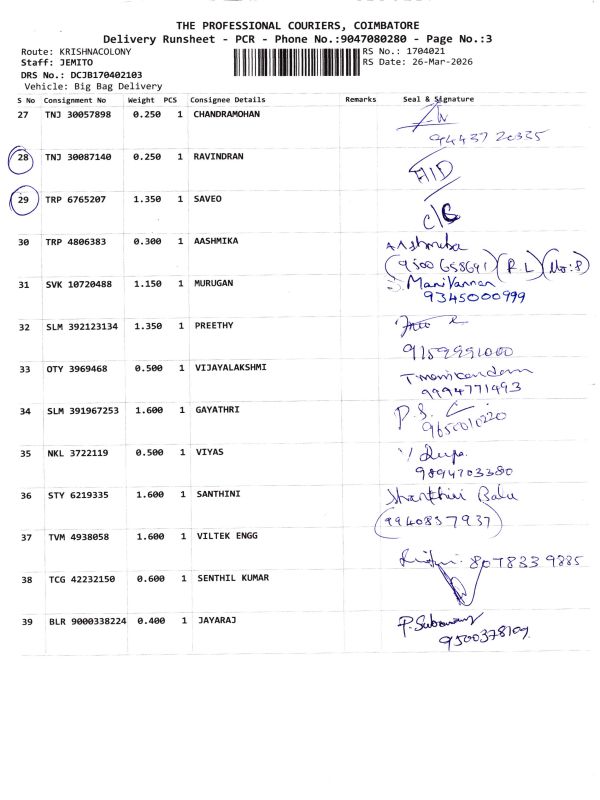 THE PROFESSIONAL COURIERS, COIMBATORE
Delivery Runsheet - PCR - Phone No.:9047080280 - Page No.:3
Route: KRISHNACOLONY RS No.: 1704021
Staff: JEMITO RS Date: 26-Mar-2026
DRS No.: DCJB170402103
Vehicle: Big Bag Delivery
S No Consignment No Weight PCS Consignee Details Remarks Seal & Signature
27 TNJ 30057898 0.250 1 CHANDRAMOHAN
9443720335
28 TNJ 30087140 0.250 1 RAVINDRAN
29 TRP 6765207 1.350 1 SAVEO
30 TRP 4806383 0.300 1 AASHMIKA AAshmika
(9500658691) (R.L) (No:8)
31 SVK 10720488 1.150 1 MURUGAN S. Manivannan
9345000999
32 SLM 392123134 1.350 1 PREETHY
9159991000
33 OTY 3969468 0.500 1 VIJAYALAKSHMI T manikandam
9994771493
34 SLM 391967253 1.600 1 GAYATHRI P.S.
9650010220
35 NKL 3722119 0.500 1 VIYAS
9894703380
36 STY 6219335 1.600 1 SANTHINI Shanthini Balu
(9940837937)
37 TVM 4938058 1.600 1 VILTEK ENGG
8078339885
38 TCG 42232150 0.600 1 SENTHIL KUMAR
39 BLR 9000338224 0.400 1 JAYARAJ
9500378109